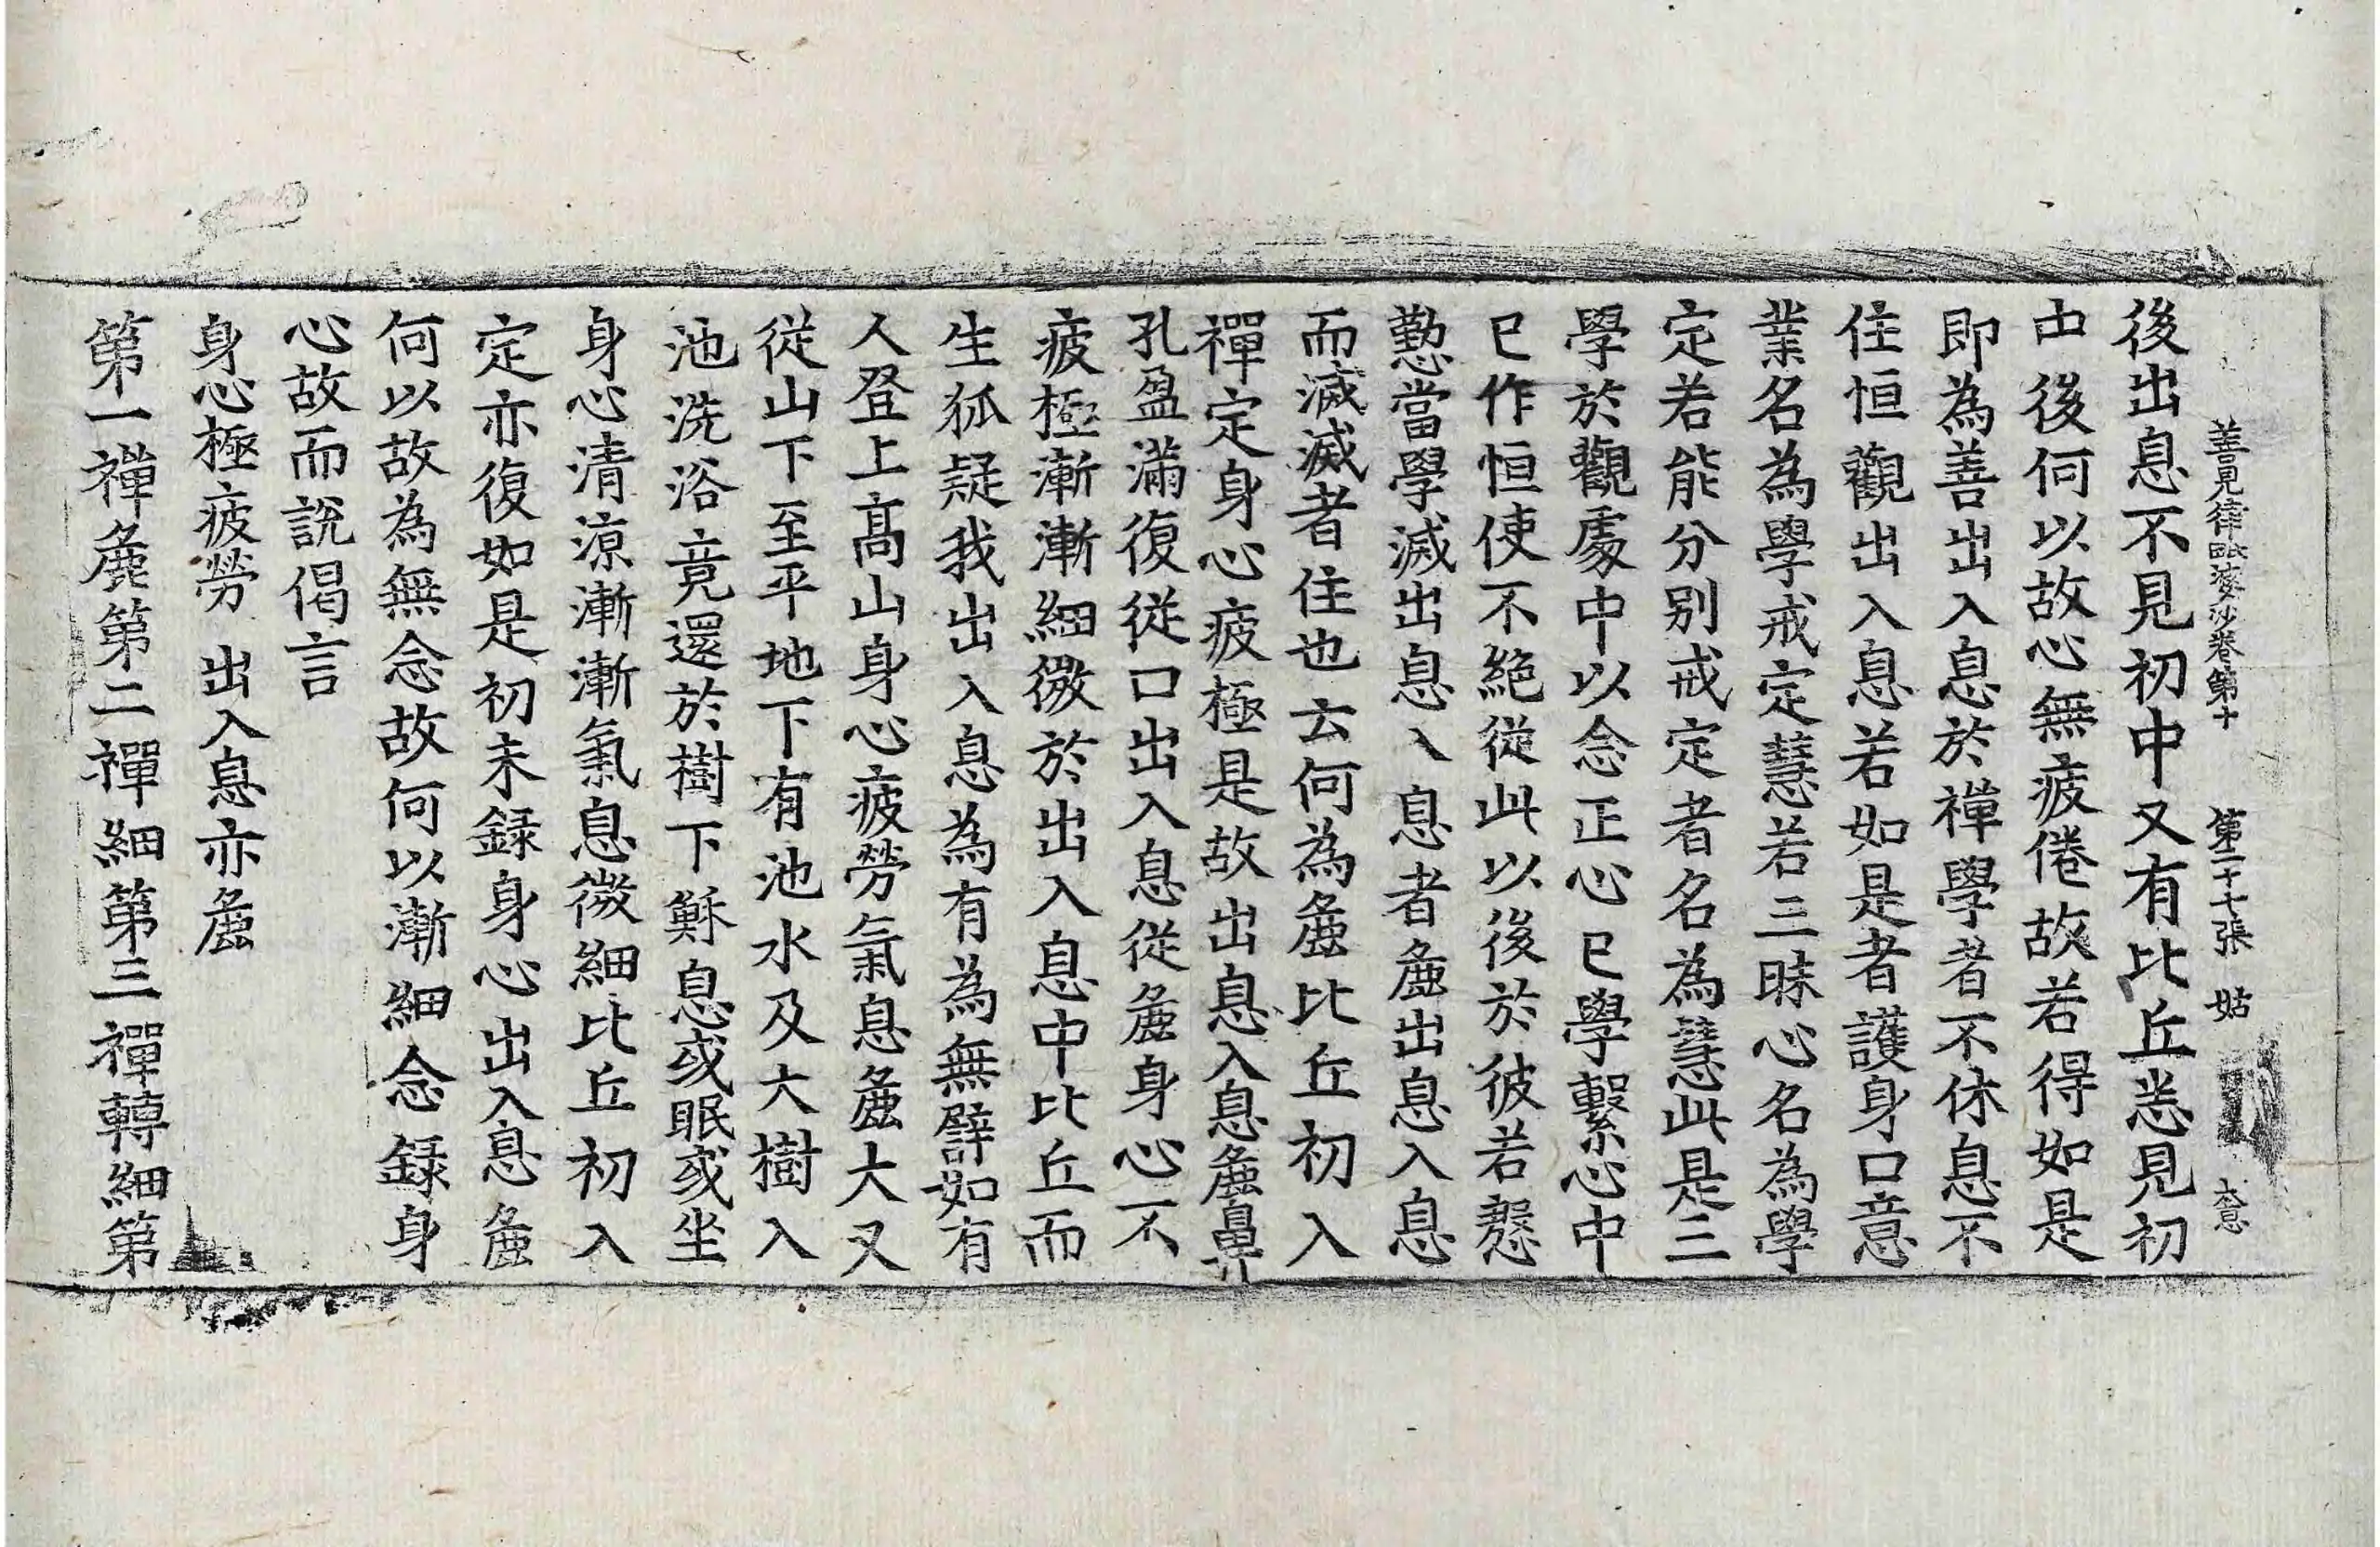 善見律毗婆沙卷第十 第二十七張 姑 大意
後出息不見初中又有比丘悉見初
中後何以故心無疲倦故若得如是
即為善出入息於禪學者不休息不
住恒觀出入息若如是者護身口意
業名為學戒定慧若三昧心名為學
定若能分別戒定者名為慧此是三
學於觀處中以念正心已學繫心中
已作恒使不絕從此以後於彼若慇
懃當學滅出息入息者麁出息入息
而滅滅者住也云何為麁比丘初入
禪定身心疲極是故出息入息麁鼻
孔盈滿復從口出入息從麁身心不
疲極漸漸細微於出入息中比丘而
生狐疑我出入息為有為無譬如有
人登上高山身心疲勞氣息麁大又
從山下至平地下有池水及大樹入
池洗浴竟還於樹下穌息或眠或坐
身心清涼漸漸氣息微細比丘初入
定亦復如是初未録身心出入息麁
何以故為無念故何以漸細念録身
心故而說偈言
身心極疲勞 出入息亦麁
第一禪麁第二禪細第三禪轉細第